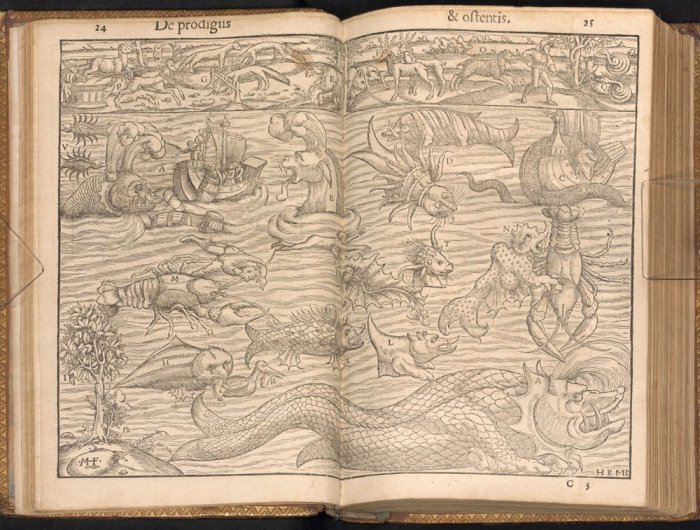 24
De prodigiis
& ostentis.
25
P
G
E
O
V
A
B
D
C
M
T
N
L
I
H
R
A
·M·F·
H R·MD
C 3